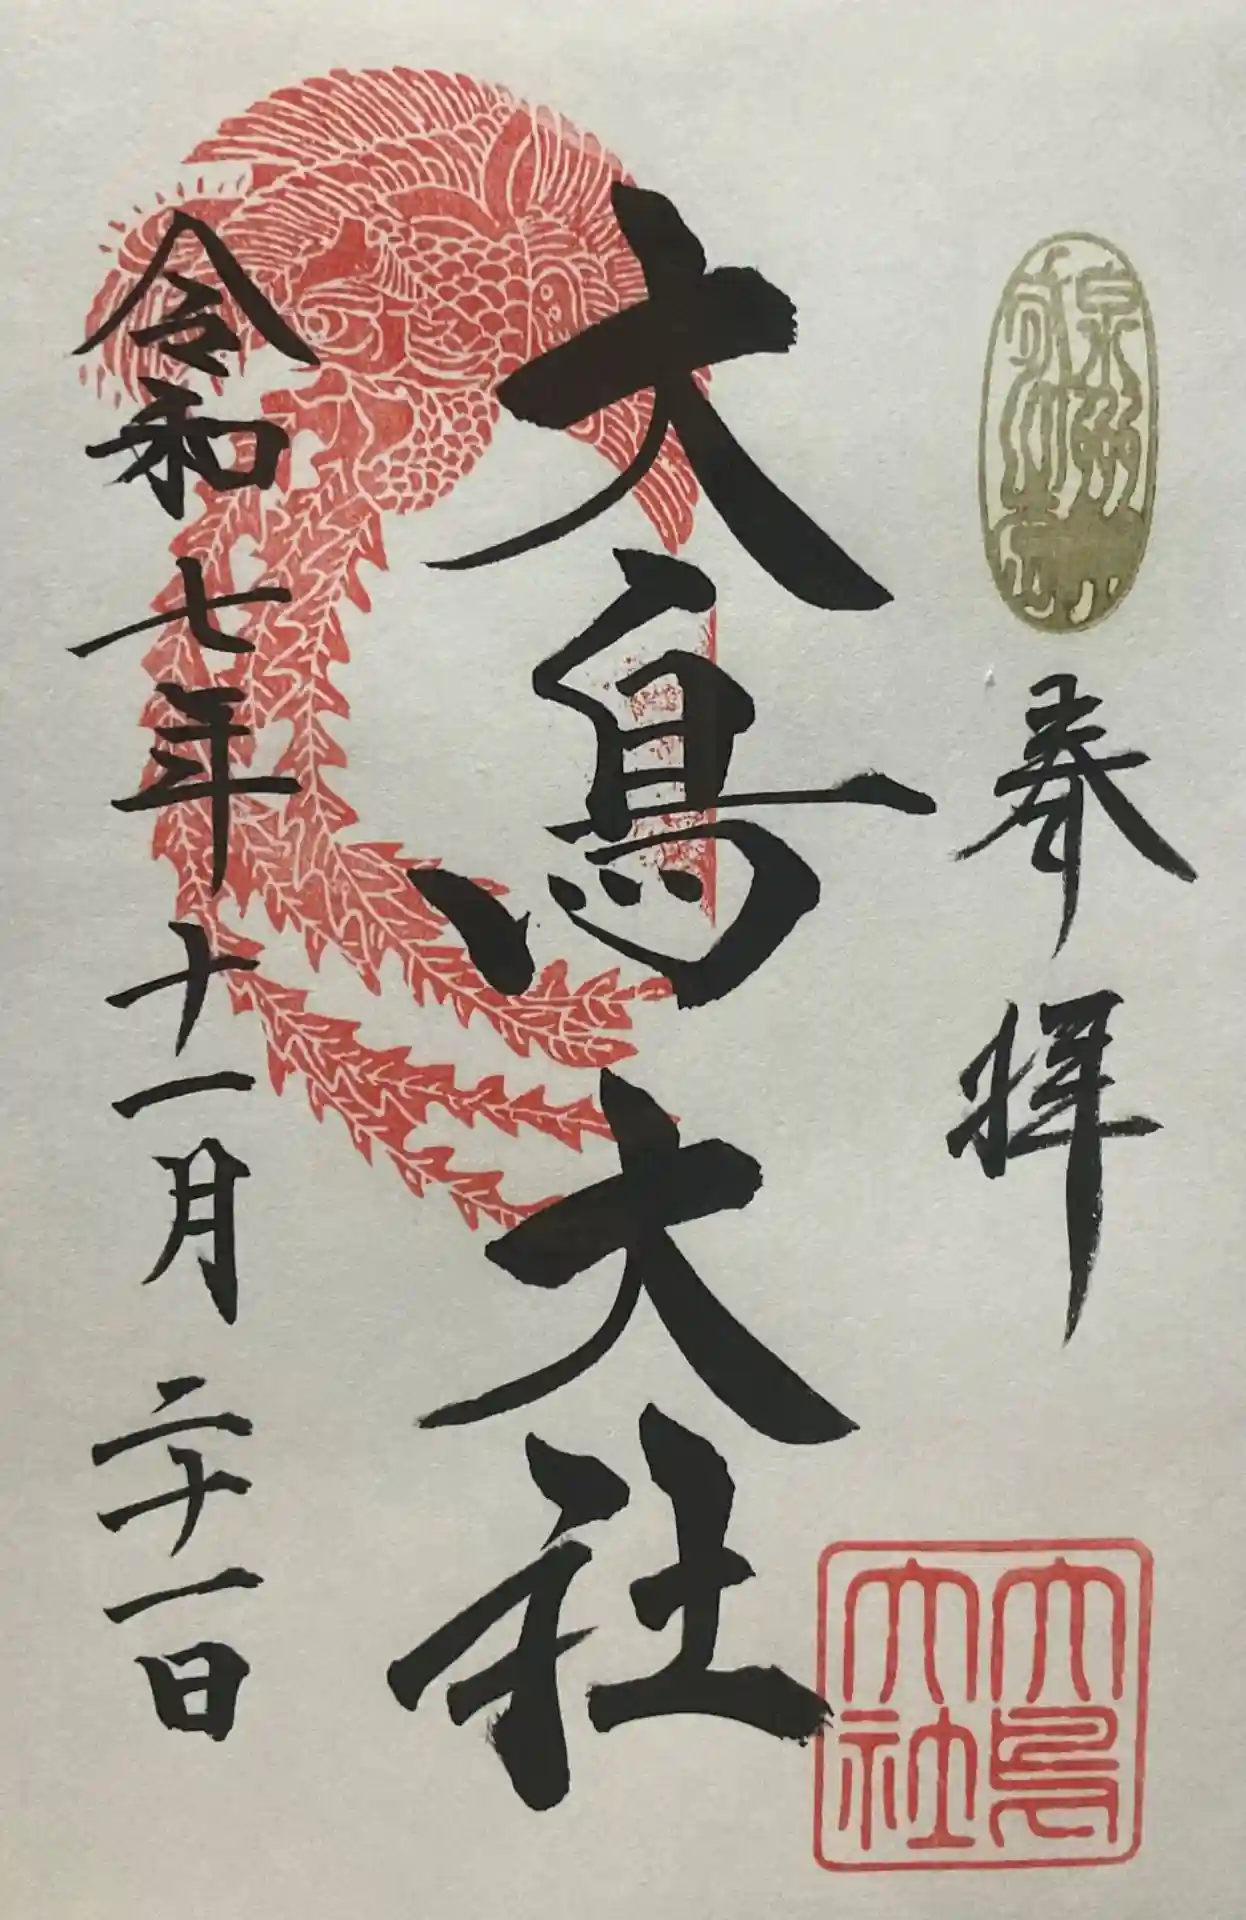 奉拝
大鳥大社
令和七年十一月二十一日
大鳥
大社